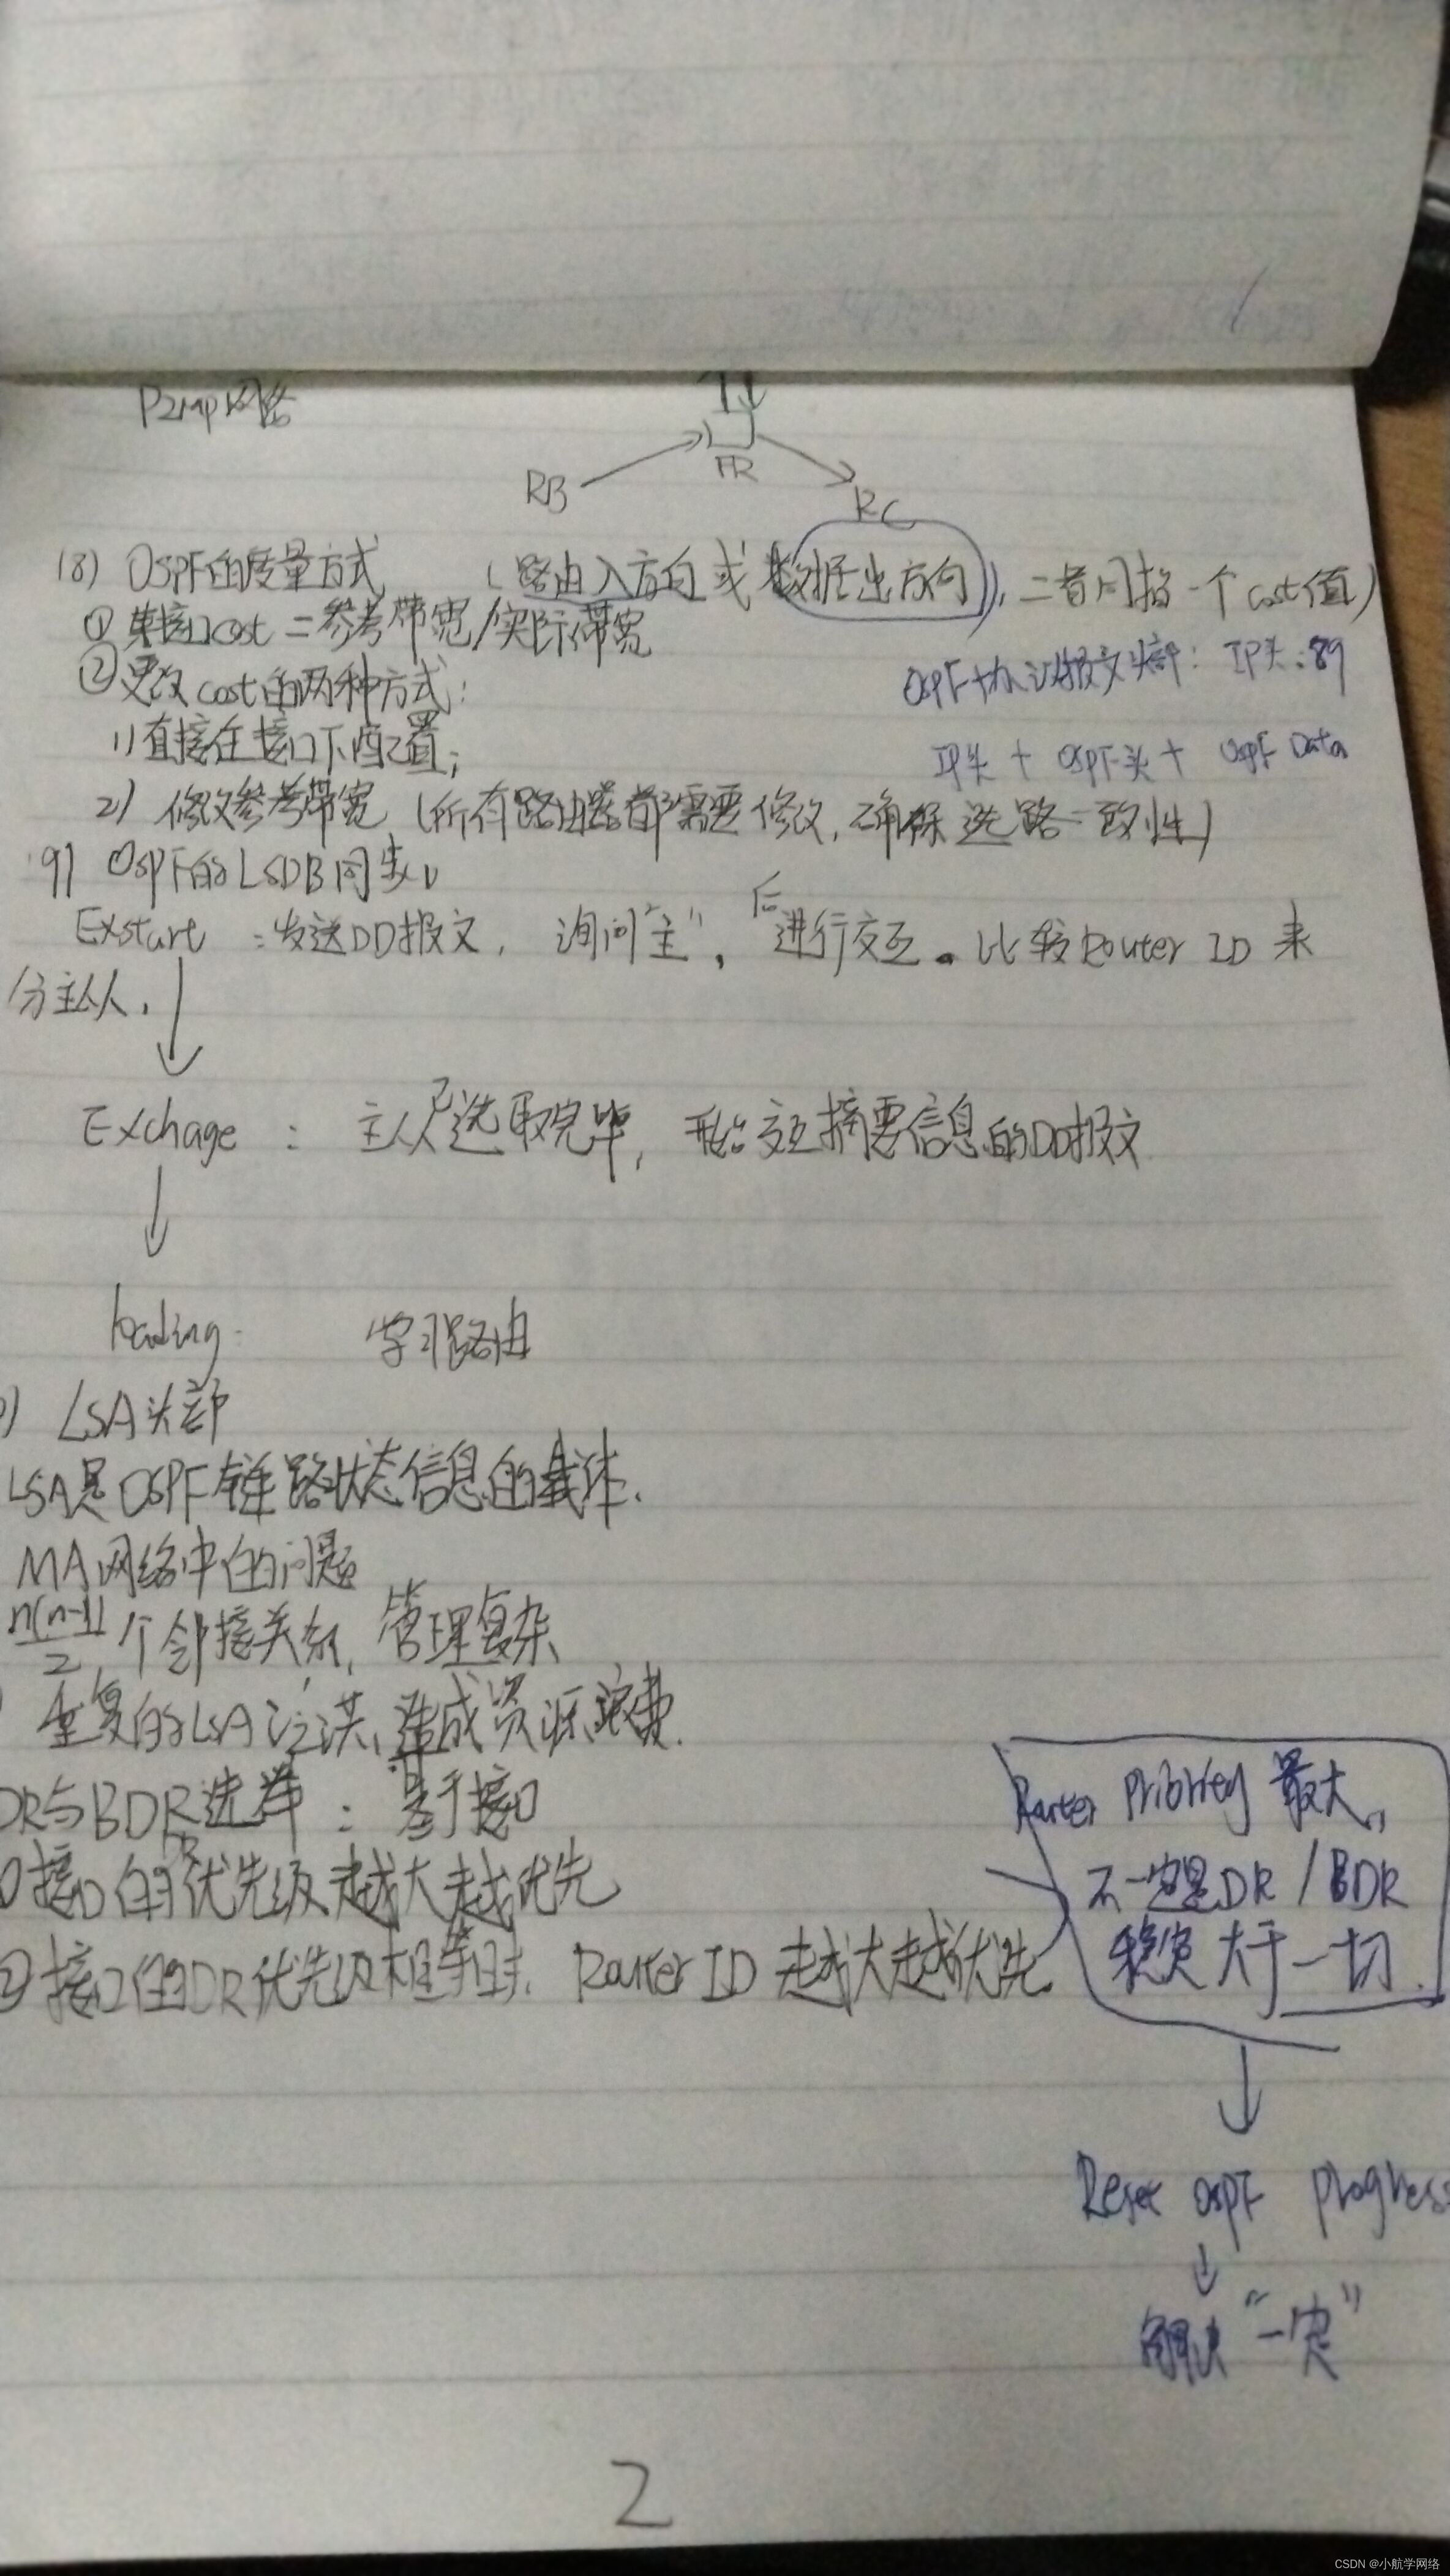 P2mp网络
FR
RB
RC
(8) OSPF的度量方式 (路由入方向或数据出方向), 二者同指一个cost值)
① 某接口cost = 参考带宽/实际带宽
OSPF协议报文头部: IP头:89
② 更改cost的两种方式:
1) 直接在接口下配置;
IP头 + OSPF头 + OSPF Data
2) 修改参考带宽 (所有路由器都需要修改, 确保选路一致性)
9) OSPF的LSDB同步
Exstart :发送DD报文, 询问"主", 后进行交互. 比较Router ID 来
分主从.
Exchage : 主从已选取完毕, 开始交互摘要信息的DD报文
loading: 学习路由
) LSA头部
LSA是OSPF链路状态信息的载体.
MA网络中的问题
n(n-1)/2 个邻接关系, 管理复杂
重复的LSA泛洪, 造成资源浪费.
DR与BDR选举 : 基于接口
接口的优先级越大越优先
②接口的DR优先级相等时, Router ID 越大越优先.
Router Priority 最大,
不一定是DR / BDR
稳定大于一切.
Reset OSPF progress
解决 "一定"
2
CSDN @小航学网络